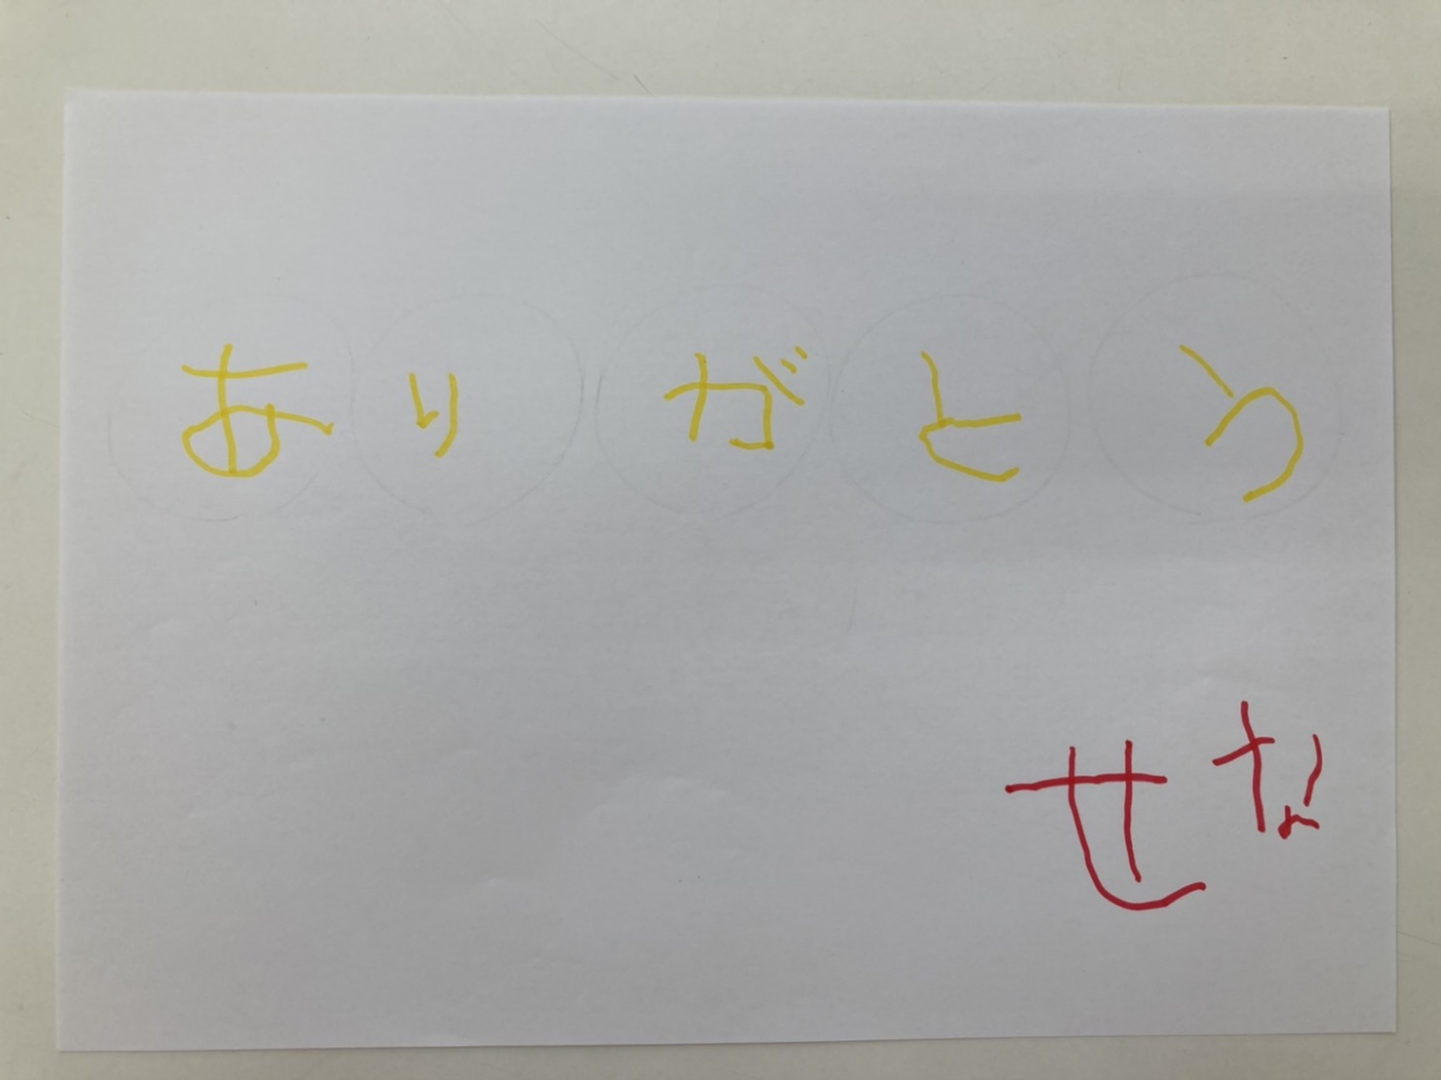 ありがとう
せな